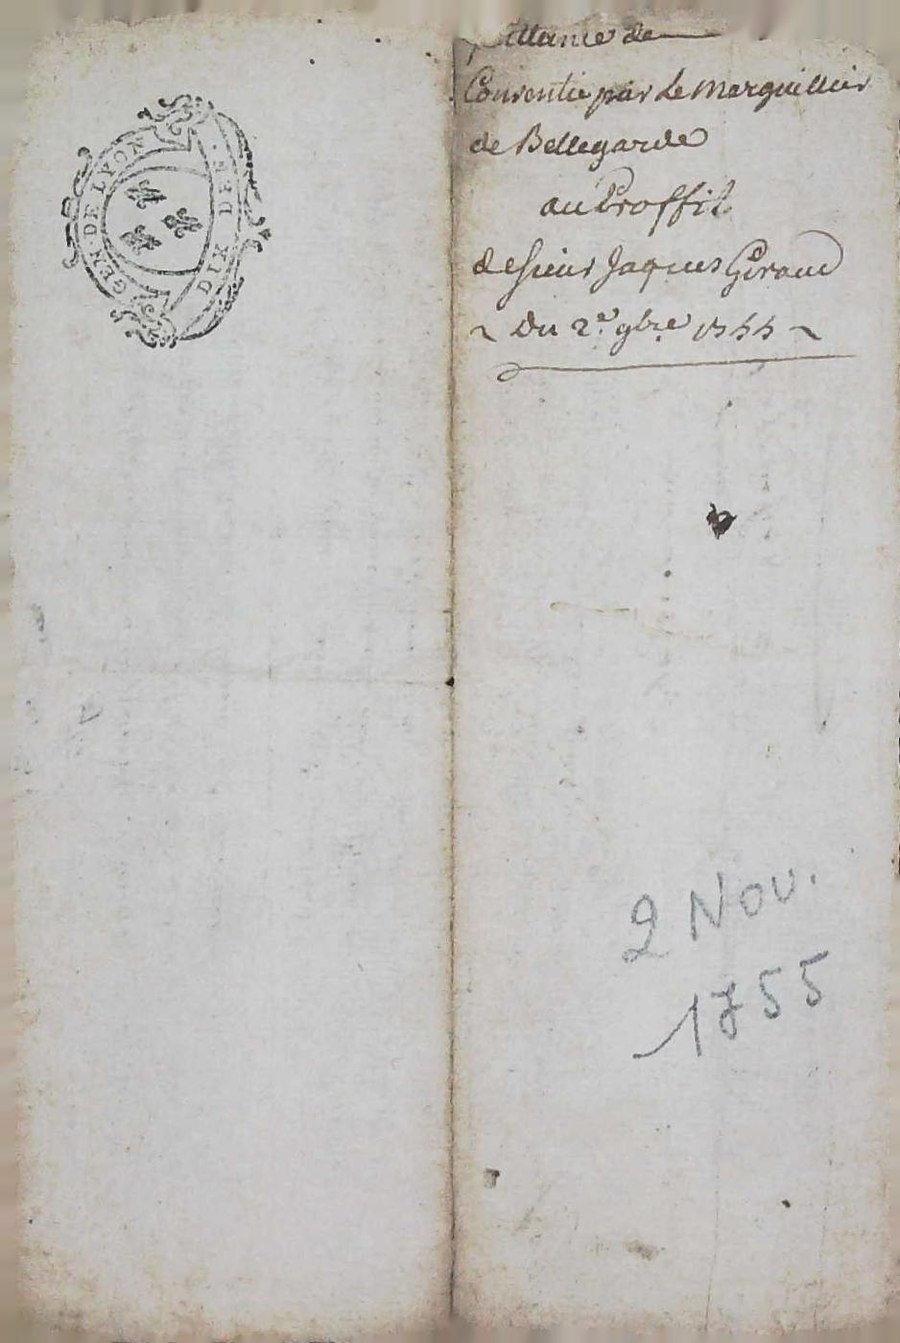 GEN · DE LYON
DIX DEN ·
de
Consentie par Le Marguillier
de Bellegarde
au Proffit
de sieur Jaques Giraud
~ Du 2e 9bre 1755 ~
2 Nov.
1755